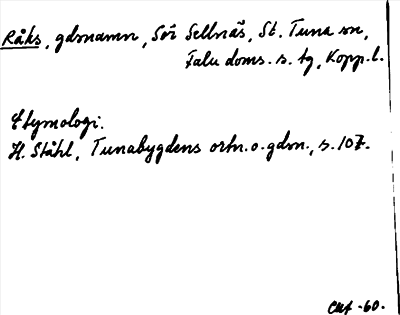 Råks, gdsnamn, Sör Sellnäs, St. Tuna sn,
Falu doms. s. tg, Kopp. l.
Etymologi.
H. Ståhl, Tunabygdens ortn. o. gdsn., s. 107.
-60-